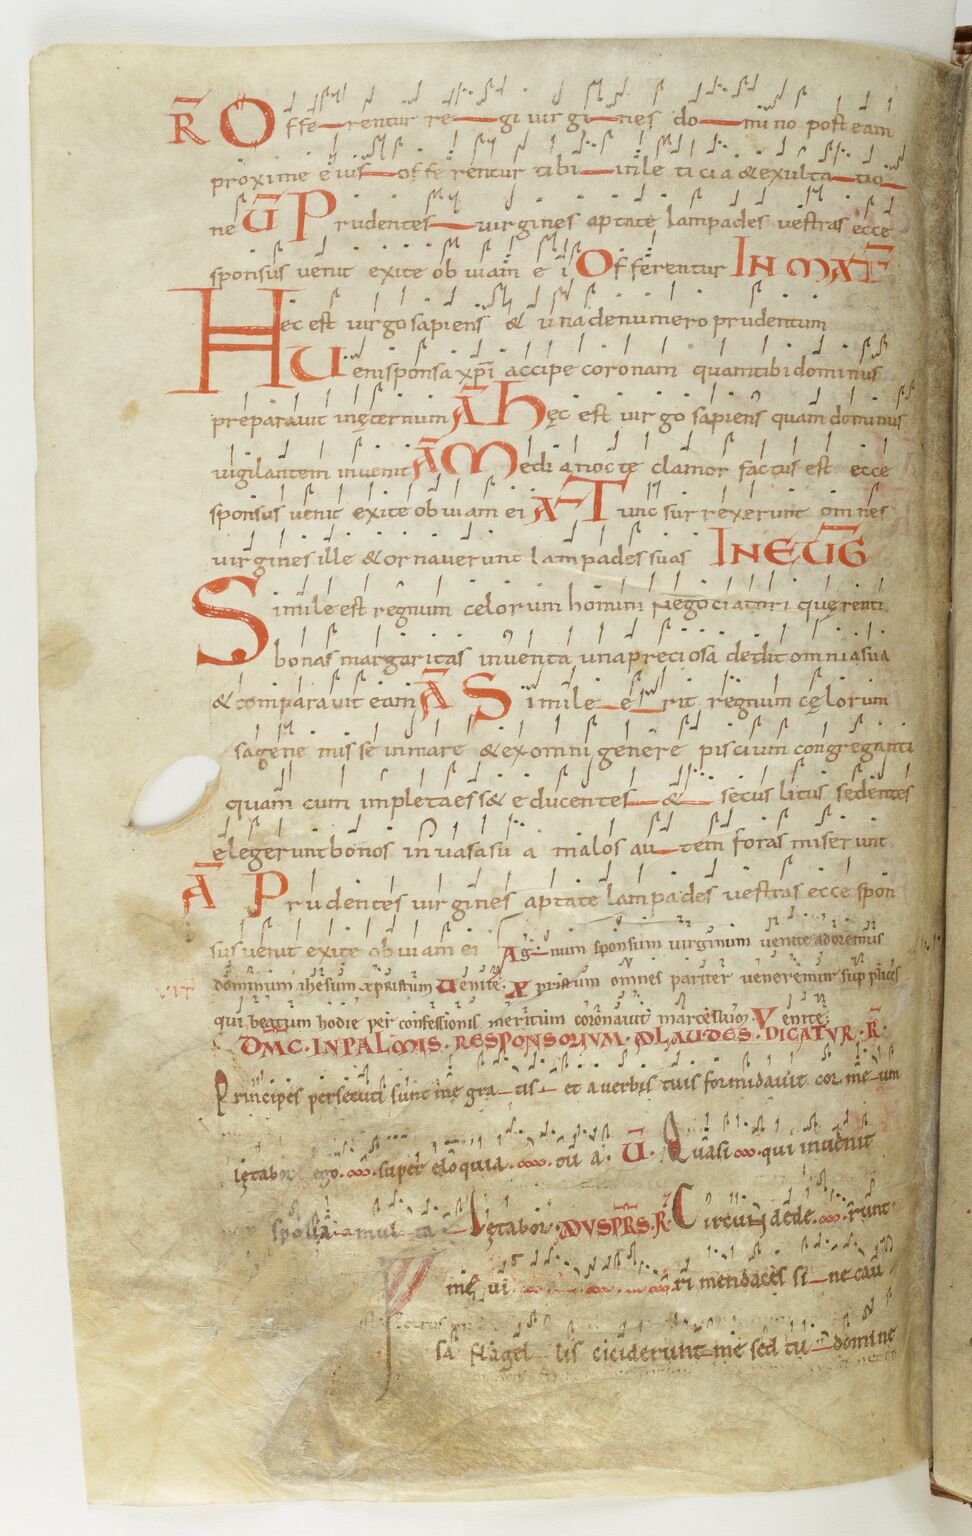 R̄ Offerentur regi virgines domino post eam
proxime eius offerentur tibi in le ticia & exulta tio
ne V̄ Prudentes virgines aptate lampades vestras ecce
sponsus venit exite obviam e i Offerentur IN MAT
Hec est virgo sapiens & una denumero prudentum
Veni sponsa xpi accipe coronam quam tibi dominus
preparavit inęternum Ā Hęc est virgo sapiens quam dominus
vigilantem invenit Ā Media nocte clamor factus est ecce
sponsus venit exite obviam ei A Tunc surrexerunt omnes
virgines ille & ornaverunt lampades suas IN EVG
Simile est regnum celorum homini negociatori quęrenti
bonas margaritas inventa una preciosa dedit omnia sua
& comparavit eam Ā Simile erit regnum cęlorum
sagene misse in mare & ex omni genere piscium congreganti
quam cum impleta ess& educentes & secus litus sedentes
elegerunt bonos in vasa sua malos autem foras miserunt
Ā Prudentes virgines aptate lampades vestras ecce spon
sus venit exite obviam ei Agnum sponsum virginum venite adoremus
dominum ihesum xpristum Venite. Xpristum omnes pariter veneremur supplices
qui beatum hodie per confessionis meritum coronavit marcellum. Venite.
DMC. IN PALMIS. RESPONSORIUM. AD LAUDES. DICATVR. R̄.
Principes persecuti sunt me gratis et a verbis tuis formidavit cor meum
lętabor ego super eloquia tu a. V̄. Quasi qui invenit
spolia multa Lętabor. AD VSPRS. R̄. Circumdede runt
me vi ri mendaces sine cau
sa flagel lis ciciderunt me sed tu domine